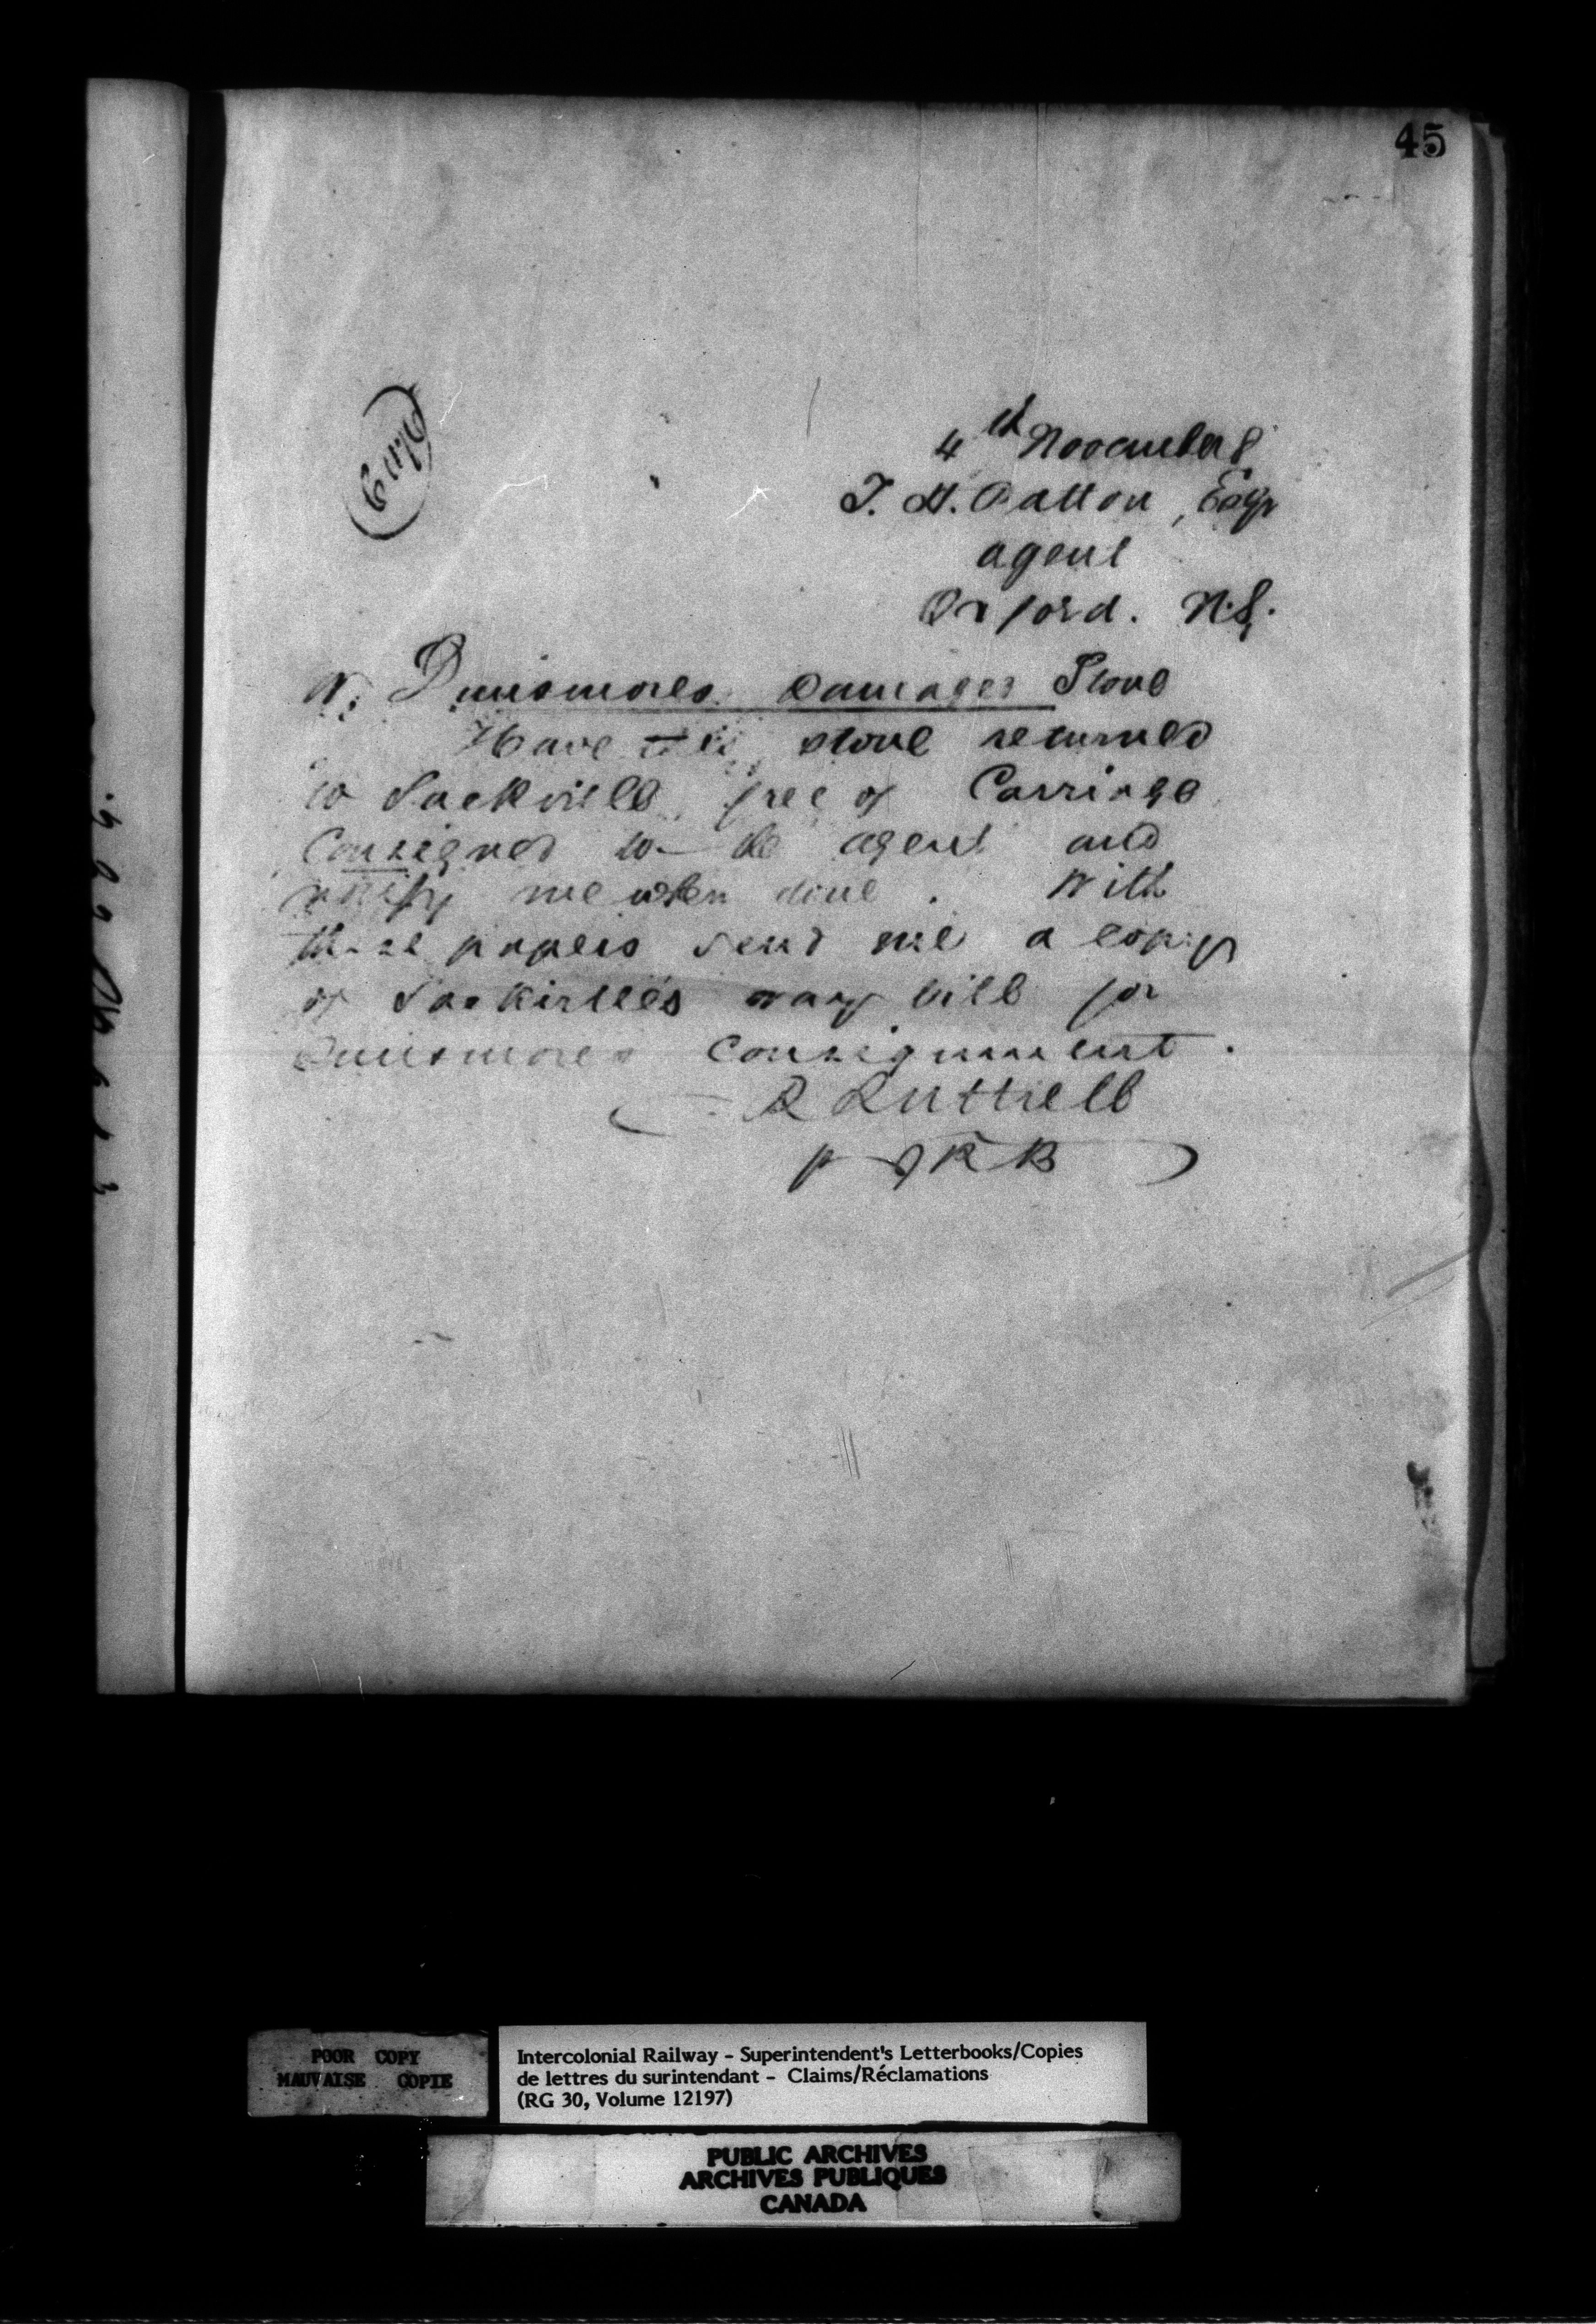 45
4th November 8
T. H. Patton, Esqr
agent
Oxford. N.S.
Dunsmores Damages Stove
Have the stove returned
to Sackville free of Carriage
Consigned to the agent and
notify me when done. With
these papers send me a copy
of Sackville's way bill for
Dunsmores Consignment.
R Luttrell
p JRB
POOR COPY
MAUVAISE COPIE
Intercolonial Railway - Superintendent's Letterbooks/Copies
de lettres du surintendant - Claims/Réclamations
(RG 30, Volume 12197)
PUBLIC ARCHIVES
ARCHIVES PUBLIQUES
CANADA